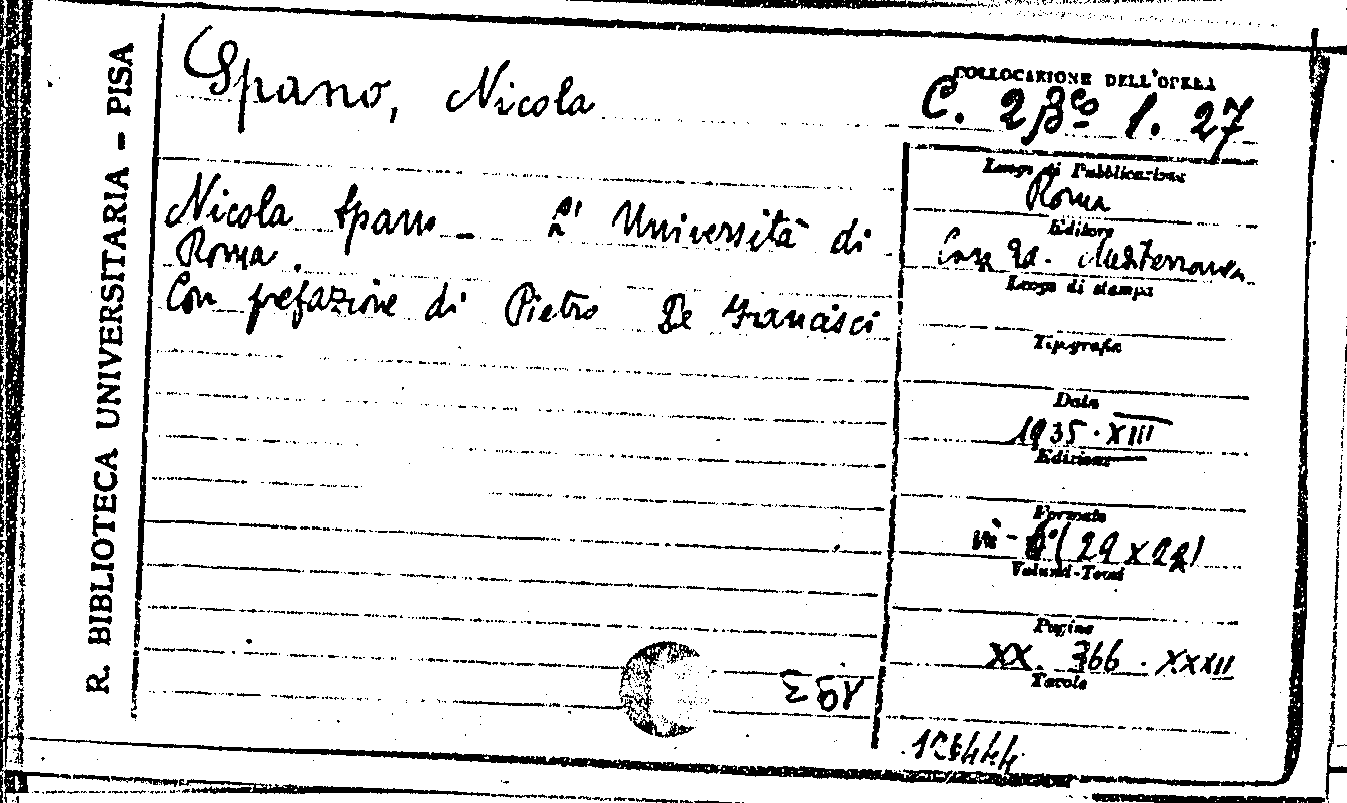 R. BIBLIOTECA UNIVERSITARIA - PISA
Spano, Nicola
Nicola Spano - L' Università di
Roma.
Con prefazione di Pietro De Francisci
COLLOCAZIONE DELL'OPERA
C. 2 1. 27
Luogo di Pubblicazione
Roma
Editore
Casa Ed. Mediterranea
Luogo di stampa
Tipografia
Data
1935 - XIII
Edizione
Formato
in - (29 x 22)
Volumi-Tomi
Pagine
XX. 366 . XXXII
Tavole